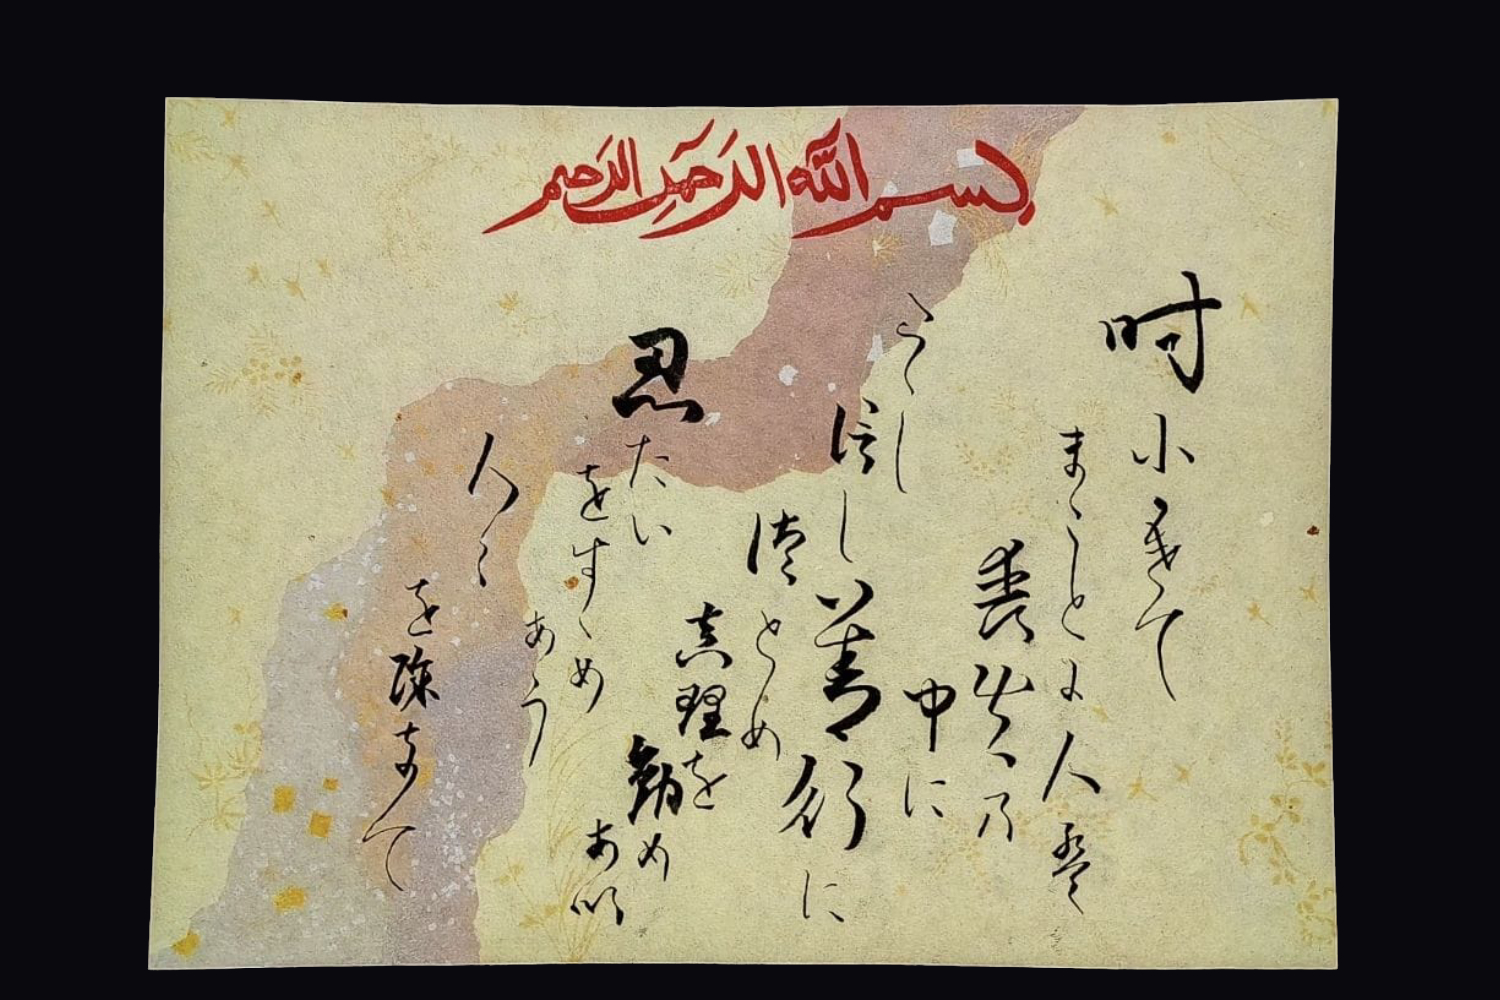 بسم الله الرحمن الرحيم
時小かけて
まことに人盤
喪失乃
中に
たゝし
信し
善行に
徒とめ
真理を
勧め
あ以
忍たい
をすゝめ
あう
人々
を除きて